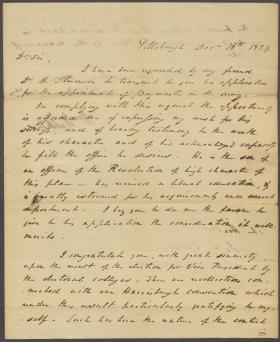 Pittsburgh Dec 18th 1824
Dr Sir,
I have been requested by my friend
Dr H. Stevenson to transmit to you his application
for the appointment of Paymaster in the army.
In complying with this request the opportunity
is afforded me of expressing my wish for his
success, and of bearing testimony to the worth
of his character and of his acknowledged capacity
to fill the office he desires. He is the son of
an officer of the Revolution of high character of
this place — has received a liberal education, &
is greatly esteemed for his acquirements and
deportment. I beg you to do me the favor to
give to his application the consideration it well
merits.
I congratulate you, with great sincerity
upon the result of the election for Vice President by
the electoral colleges. There are recollections con-
nected with our Harrisburgh convention which
render this result particularly gratifying to my-
self. Such has been the nature of the contest
in